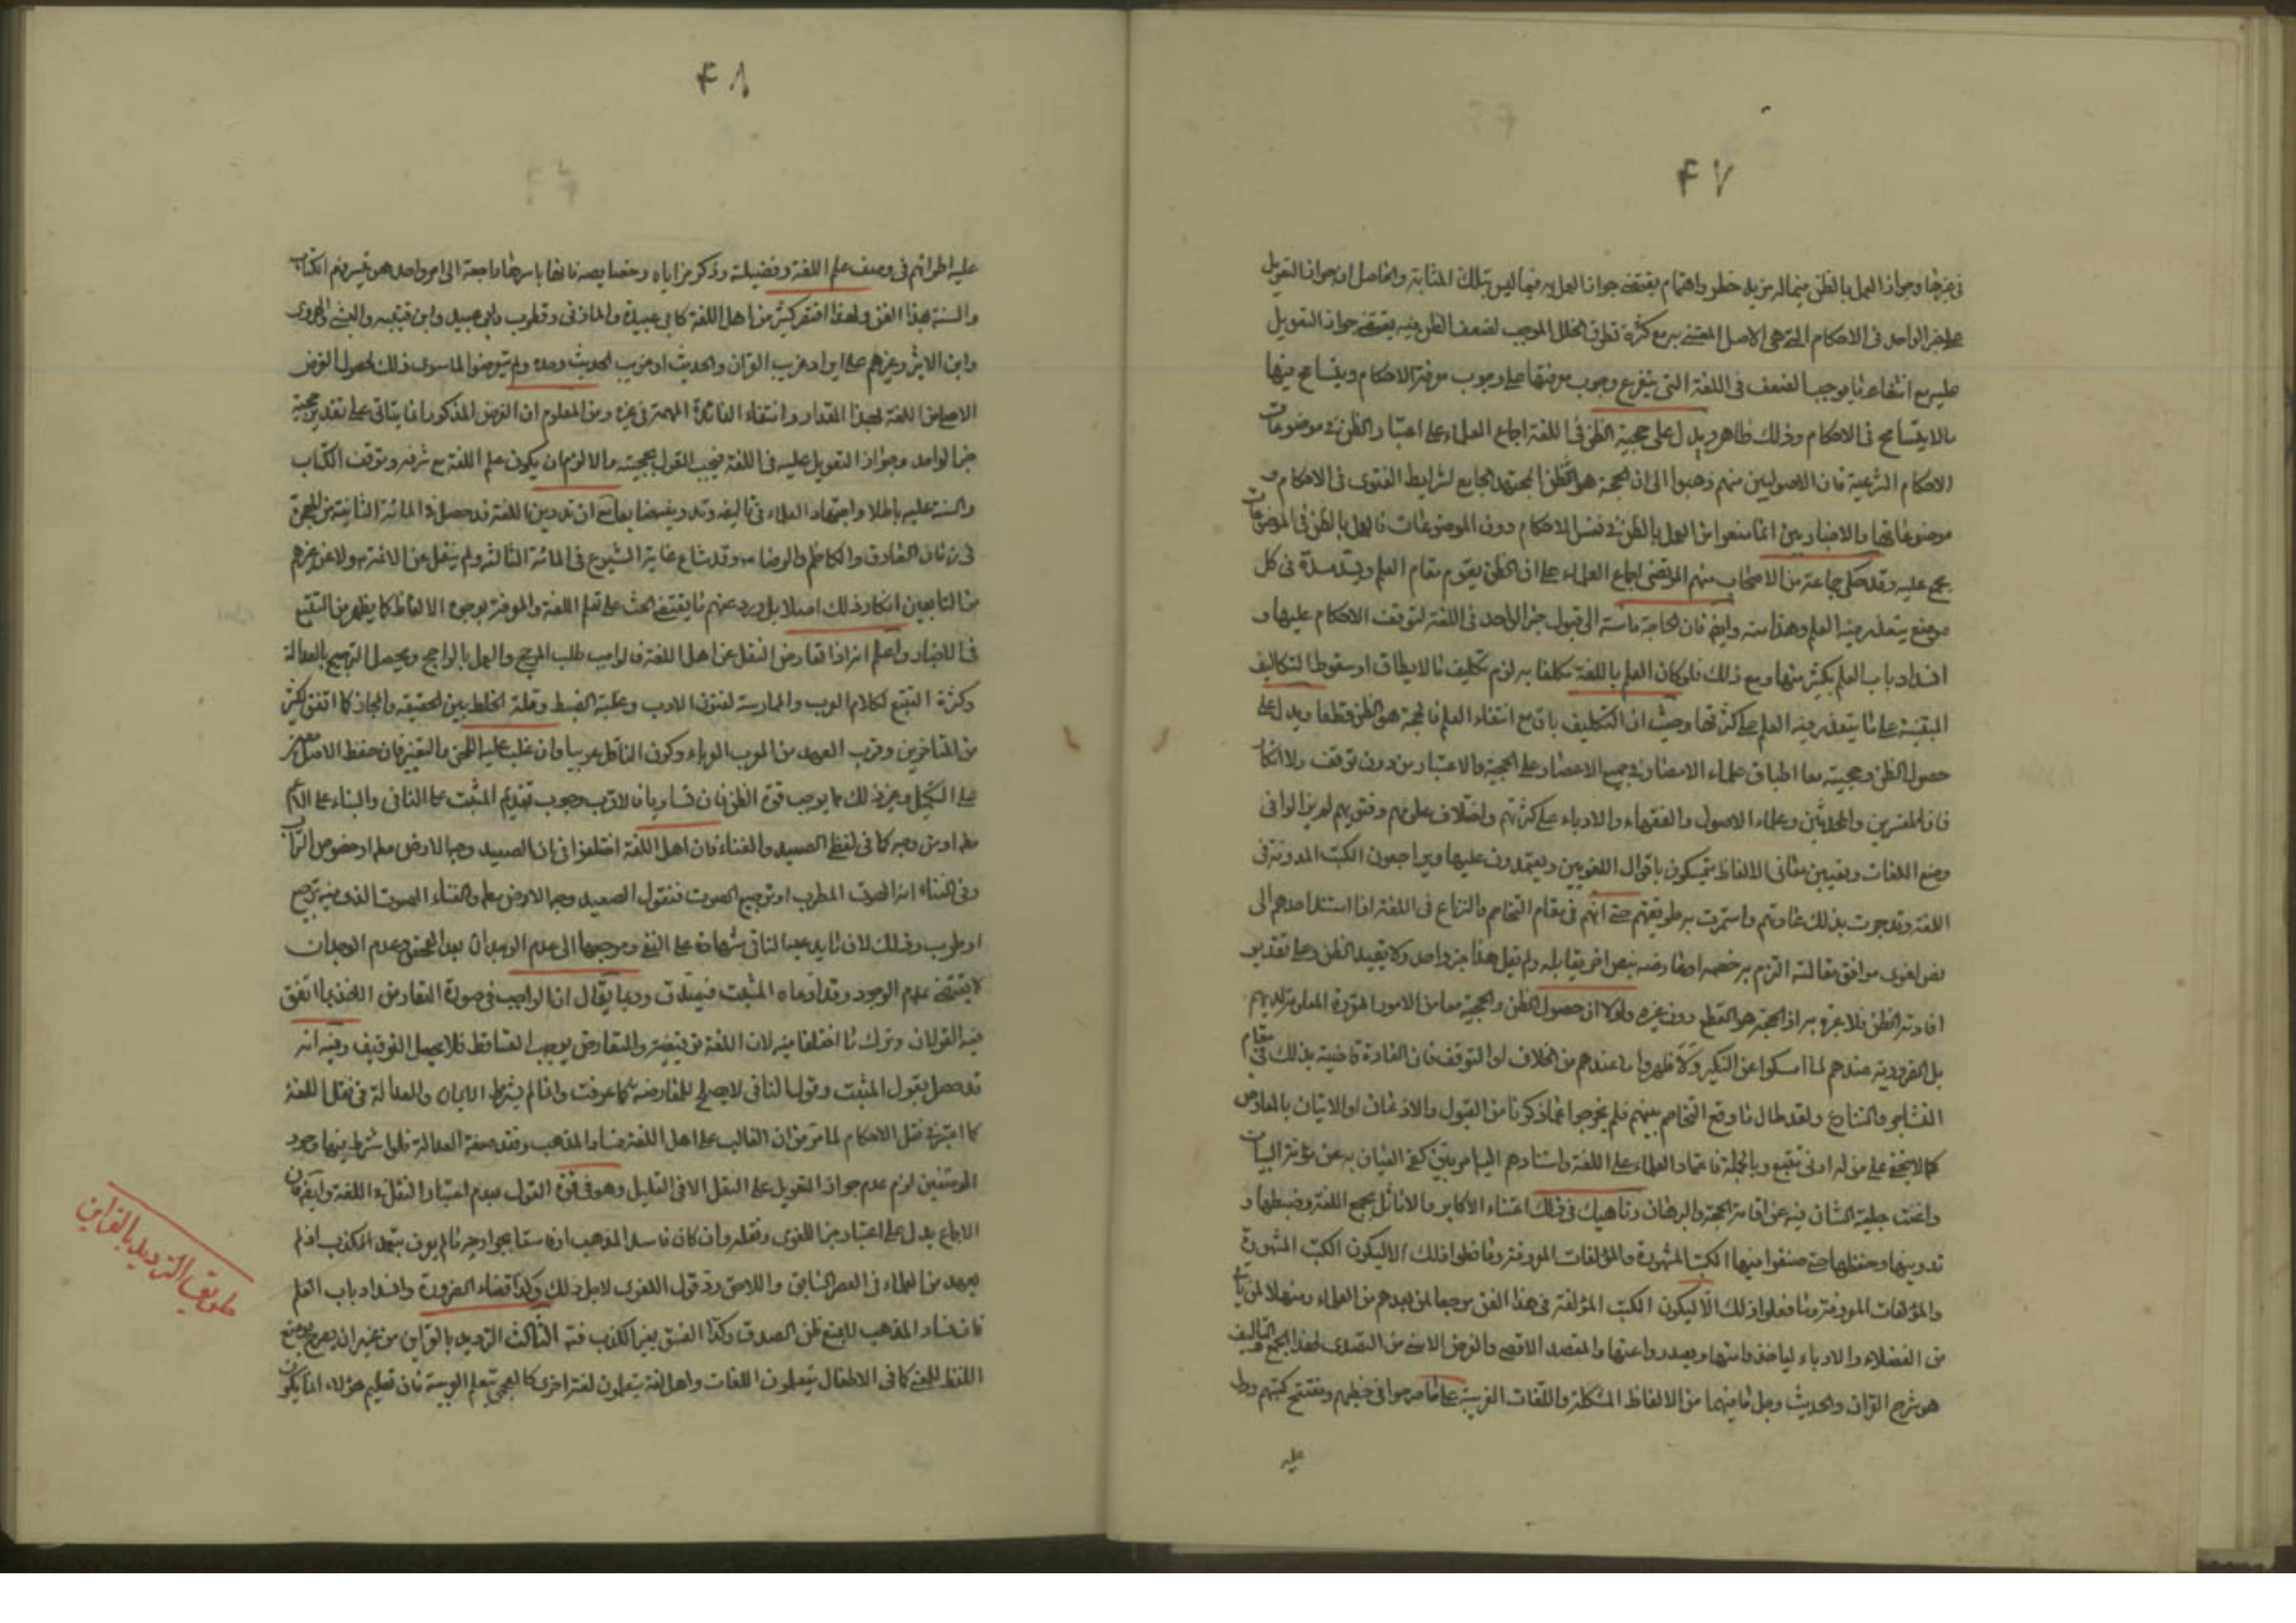 ۴۷
في غيرها وجواز العمل بالظن فيما له مزيد خطر واهتمام يقتضي جواز العمل به فيما ليس بتلك المثابة والحاصل ان جواز التعويل
على خبر الواحد في الاحكام التي هي الاصل المعتنى به مع كثرة تطرق الخلل الموجب لضعف الظن فيه يقتضي جواز التعويل
عليه مع انتفاء ما يوجب الضعف في اللغة التي يتفرع وجوب معرفتها على وجوب معرفة الاحكام ويتسامح فيها
مالا يتسامح في الاحكام وذلك ظاهر ويدل على حجية الظن في اللغة اجماع العلماء على اعتبار الظن في موضوعات
الاحكام الشرعية فان الاصوليين منهم ذهبوا الى ان الحجة هو الظن المجتهد الجامع لشرايط الفتوى في الاحكام و
موضوعاتها والاخباريين انما منعوا من العمل بالظن في نفس الاحكام دون الموضوعات فالعمل بالظن في الموضوعات
مجمع عليه وقد حكى جماعة من الاصحاب منهم المرتضى اجماع العلماء على ان الظن يقوم مقام العلم ويسد مسده في كل
موضع يتعذر فيه العلم وهذا منه وايضا فان الحاجة ماسة الى قبول خبر الواحد في اللغة لتوقف الاحكام عليها و
انسداد باب العلم بكثير منها ومع ذلك فلو كان العلم باللغة مكلفا به لزم تكليف ما لا يطاق او سقوط التكاليف
المبتنية على ما يتعذر فيه العلم على كثرتها وحيث ان التكليف باق مع انتفاء العلم فالحجة هو الظن قطعا ويدل على
حصول الظن وحجيته معا اطباق علماء الامصار في جميع الاعصار على الحجية والاعتبار من دون توقف ولا انكار
فان المفسرين والمحدثين وعلماء الاصول والفقهاء والادباء على كثرتهم واختلاف علومهم وفنونهم لم يزالوا في
وضع اللغات وتعيين معاني الالفاظ يتمسكون باقوال اللغويين ويعتمدون عليها ويراجعون الكتب المدونة في
اللغة وقد جرت بذلك عادتهم واستمرت به طريقتهم حتى انهم في مقام التخاصم والنزاع في اللغة اذا استند احدهم الى
نص لغوي موافق مقالته التزم به خصمه او عارضه بنص اخر يقابله ولم يقل هذا خبر واحد ولا يفيد الظن وعلى تقدير
افادته الظن فلا عبرة به اذ الحجة هو القطع دون غيره ولولا ان حصول الظن والحجية معا من الامور المقررة المعلومة لديهم
بل الضرورية عندهم لما امسكوا عن النكير ولاظهروا ما عندهم من الخلاف او التوقف فان العادة قاضية بذلك في مقام
التشاجر والتنازع ولقد طال ما وقع التخاصم بينهم فلم يخرجوا عما ذكرنا من القبول والاذعان او الاتيان بالمعارض
كما لا يخفى على من له ادنى تتبع وبالجملة فاعتماد العلماء على اللغة واستنادهم اليها مما يكفي العيان به عن مؤنة البيان
واغنت جلية الشان فيه عن اقامة الحجة والبرهان وناهيك في ذلك اعتناء الاكابر والاماثل بجمع اللغة وضبطها و
تدوينها وحفظها حتى صنفوا فيها الكتب المشهورة والمؤلفات المعروفة وما فعلوا ذلك الا ليكون الكتب المشهورة
والمؤلفات المعروفة وما فعلوا ذلك الا ليكون الكتب المؤلفة في هذا الفن مرجعا لمن بعدهم من العلماء ومنهلا لمن ياتي
من الفضلاء والادباء لياخذوا منها ويصدروا عنها والمقصد الاقصى والغرض الاسنى من التصدي لهذا الجمع والتاليف
هو شرح القران والحديث وحل ما فيهما من الالفاظ المشكلة واللغات الغريبة على ما صرحوا في خطبهم ومفتتح كتبهم ودل
عليه
۴۸
عليه اطرائهم في وصف علم اللغة وفضيلته وذكر مزاياه وخصايصه فانها باسرها راجعة الى امر واحد هو تيسر فهم الكتاب
والسنة بهذا الفن ولهذا اقتصر كثير من اهل اللغة كابي عبيدة والمازني وقطرب وابي عبيد وابن قتيبه والهروي
وابن الاثير وغيرهم على ايراد غريب القران والحديث او غريب الحديث وحده ولم يتعرضوا لما سوى ذلك لحصول الغرض
الاصلي من اللغة بهذا المقدار وانتفاء الفائدة المهمة في غيره ومن المعلوم ان الغرض المذكور انما يتاتى على تقدير حجية
خبر الواحد وجواز التعويل عليه في اللغة فيجب القول بحجيته والا لزم ان يكون علم اللغة مع شرفه وتوقف الكتاب
والسنة عليه باطلا واجتهاد العلماء في تاليفه وتدوينه ضايعا مع ان تدوين اللغة قد حصل في المائة الثانية من الهجرة
في زمان الصادق والكاظم والرضا وقد شاع غاية الشيوع في المائة الثالثة ولم ينقل عن الائمة ولا عن غيرهم
من التابعين انكار ذلك اصلا بل ورد عنهم ما يقتضي الحث على تعلم اللغة والمعرفة بوجوه الالفاظ كما يظهر من التتبع
في الاخبار واعلم انه اذا تعارض النقل عن اهل اللغة فالواجب طلب المرجح والعمل بالراجح ويحصل الترجيح بالعدالة
وكثرة التتبع لكلام العرب والممارسة لفنون الادب وغلبة الضبط وقلة الخلط بين الحقيقة والمجاز كما اتفق لكثير
من المتاخرين وقرب العهد من العرب العرباء وكون الناقل عربيا وان غلب عليه اللحن والتغيير فان حفظ الاصل
على وغير ذلك مما يوجب قوة الظن فان تساويا فالاقرب وجوب تقديم المثبت على النافي والبناء على الاعم
مطلقا او من وجه كما في لفظ الصعيد والغناء فان اهل اللغة اختلفوا في ان الصعيد وجه الارض مطلقا او خصوص التراب
وفي الغناء انه الصوت المطرب او ترجيع الصوت فنقول الصعيد وجه الارض مطلقا والغناء الصوت الذي فيه ترجيع
او طرب وذلك لان ما يدعيه النافي شهادة على النفي ومرجعها الى عدم الوجدان بعد الفحص وعدم الوجدان
لا يقتضي عدم الوجود وقد ادعاه المثبت فيصدق وربما يقال ان الواجب في صورة التعارض الاخذ بما اتفق
فيه القولان وترك ما اختلفا فيه لان اللغة توقيفية والتعارض يوجب التساقط فلا يحصل التوقيف وفيه انه
قد حصل بقول المثبت وقول النافي لا يصلح للمعارضة كما عرفت وانما لم يشترط الايمان والعدالة في نقل اللغة
كما اعتبر في نقل الاحكام لما من ان الغالب على اهل اللغة فساد المذهب وفقد صفة العدالة فلو اشترط فيها وجود
الوصفين لزم عدم جواز التعويل على النقل الا في القليل وهو في قوة القول بعدم اعتبار النقل في اللغة وايضا فان
الاجماع يدل على اعتبار خبر اللغوي ونقله وان كان فاسد المذهب او فاسقا بجوارحه ما لم يعرف بتعمد الكذب اذ لم
يعهد من العلماء في العصر السابق واللاحق رد قول اللغوي لاجل ذلك وكذا قضاء الضرورة وانسداد باب العلم
فان فساد المذهب لا يمنع ظن الصدق وكذا الفسق بغير الكذب فيه الثالث الترديد بالقراين من غير ان يصرح بوضع
اللفظ للمعنى كما في الاطفال يتعلمون اللغات واهل لغة يتعلمون لغة اخرى كالعجمي يتعلم العربية فان تعليم هؤلاء انما يكون
طريقة الترديد بالقراين